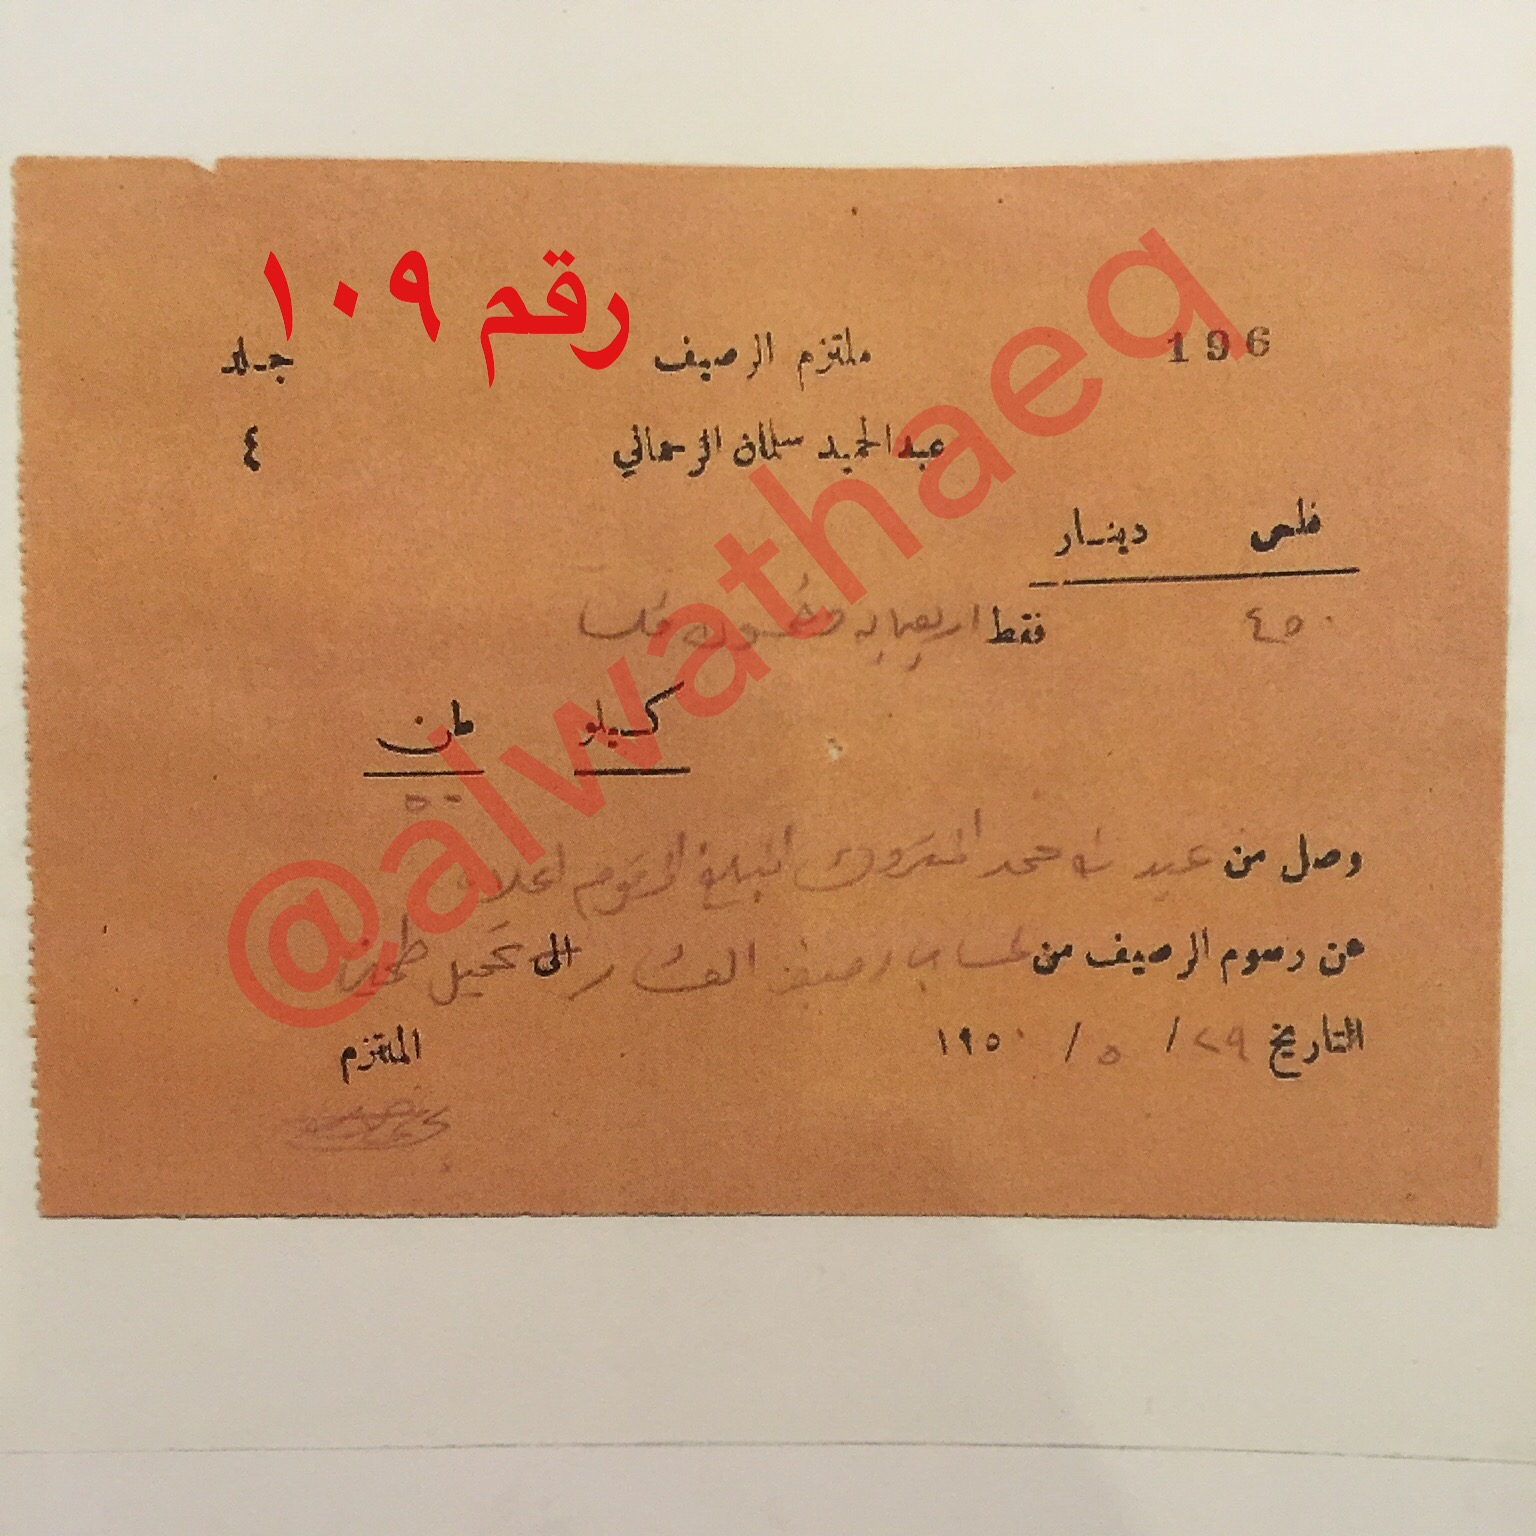 رقم ١٠٩
196 ملتزم الرصيف جلد
عبدالحميد سلمان الرحماني ٤
فلس دينار
٤٥٠ فقط اربعمايه وخمسون فلسا
كيلو طن
٥٠
وصل من عبد الله محمد المتروك المبلغ المرقوم اعلاه
عن رسوم الرصيف من لحساب رصيف العشار الى تحميل طحين
التاريخ ٢٩ / ٥ / ١٩٥٠
الملتزم
@alwathaeq